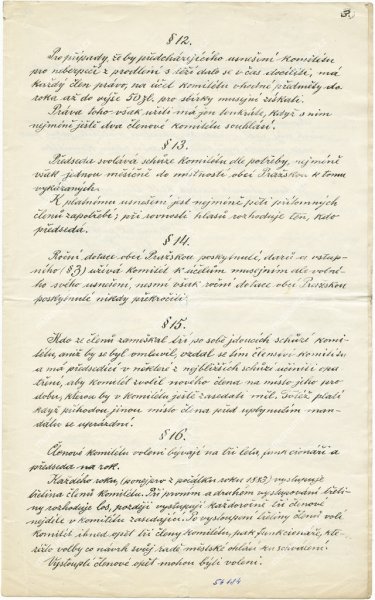 3.
§ 12.
Pro případy, že by předcházejícího usnešení komitétu
pro nebezpečí z prodlení s těží dalo se v čas docíliti, má
každý člen právo, na účel komitétu vhodné předměty do
roka až do výše 50 zl. pro sbírky musejní získati.
Práva toho však užíti má jen tenkráte, když s ním
nejméně ještě dva členové komitétu souhlasí.
§ 13.
Předseda svolává schůze Komitétu dle potřeby, nejméně
však jednou měsíčně do místnosti obcí Pražskou k tomu
vykázaných.
K platnému usnešení jest nejméně pěti přítomných
členů zapotřebí; při rovnosti hlasů rozhoduje ten, kdo
předsedá.
§ 14.
Roční dotace obcí Pražskou poskytnuté, darů a vstup-
ného (§ 3) užívá Komitét k účelům musejním dle volné-
ho svého usnešení, nesmí však roční dotace obcí Pražskou
poskytnuté nikdy překročiti.
§ 15.
Kdo ze členů zameškal tři po sobě jdoucích schůzí komi-
tétu, aniž by se byl omluvil, vzdal se tím členství v komitétu
a má předseda v některé z nejbližších schůzí učiniti opa-
tření, aby komitét zvolil nového člena na místo jeho pro
dobu, kterou by v komitétu ještě zasedati měl. Totéž platí
když příhodou jinou místo člena před uplynutím man-
dátu se uprázdní.
§ 16.
Členové komitétu voleni bývají na tři léta, funkcionáři a
předseda na rok.
Každého roku, (ponejprv z počátku roku 1883) vystupuje
třetina členů Komitétu. Při prvním a druhém vystupování třeti-
ny rozhoduje los, později vystupují každoročně tři členové
nejdéle v komitétu zasedající. Po vystoupení třetiny členů volí
komitét ihned opět tři členy komitétu, pak funkcionáře, kte-
réžto volby co návrh svůj radě městské ohlásí ku schválení.
Vystouplí členové opět mohou býti voleni.